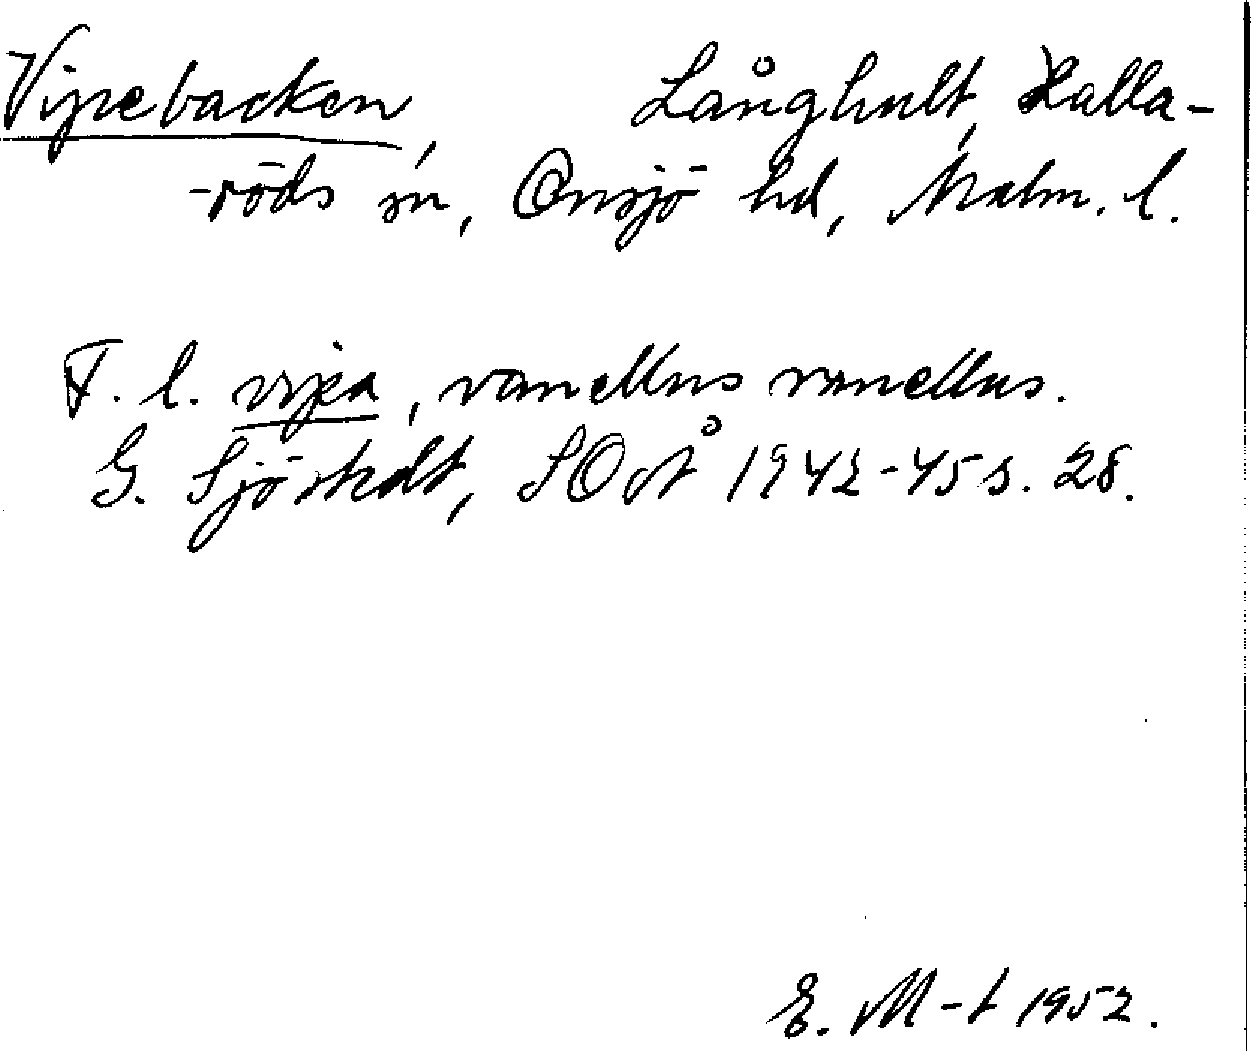 Vipebacken, Långhult, Halla-
-röds sn, Onsjö hd, Malm. l.
F. l. vipa, vanellus vanellus.
G. Sjöstedt, SOÅ 1942-45 s. 28.
E. M-t 1952.